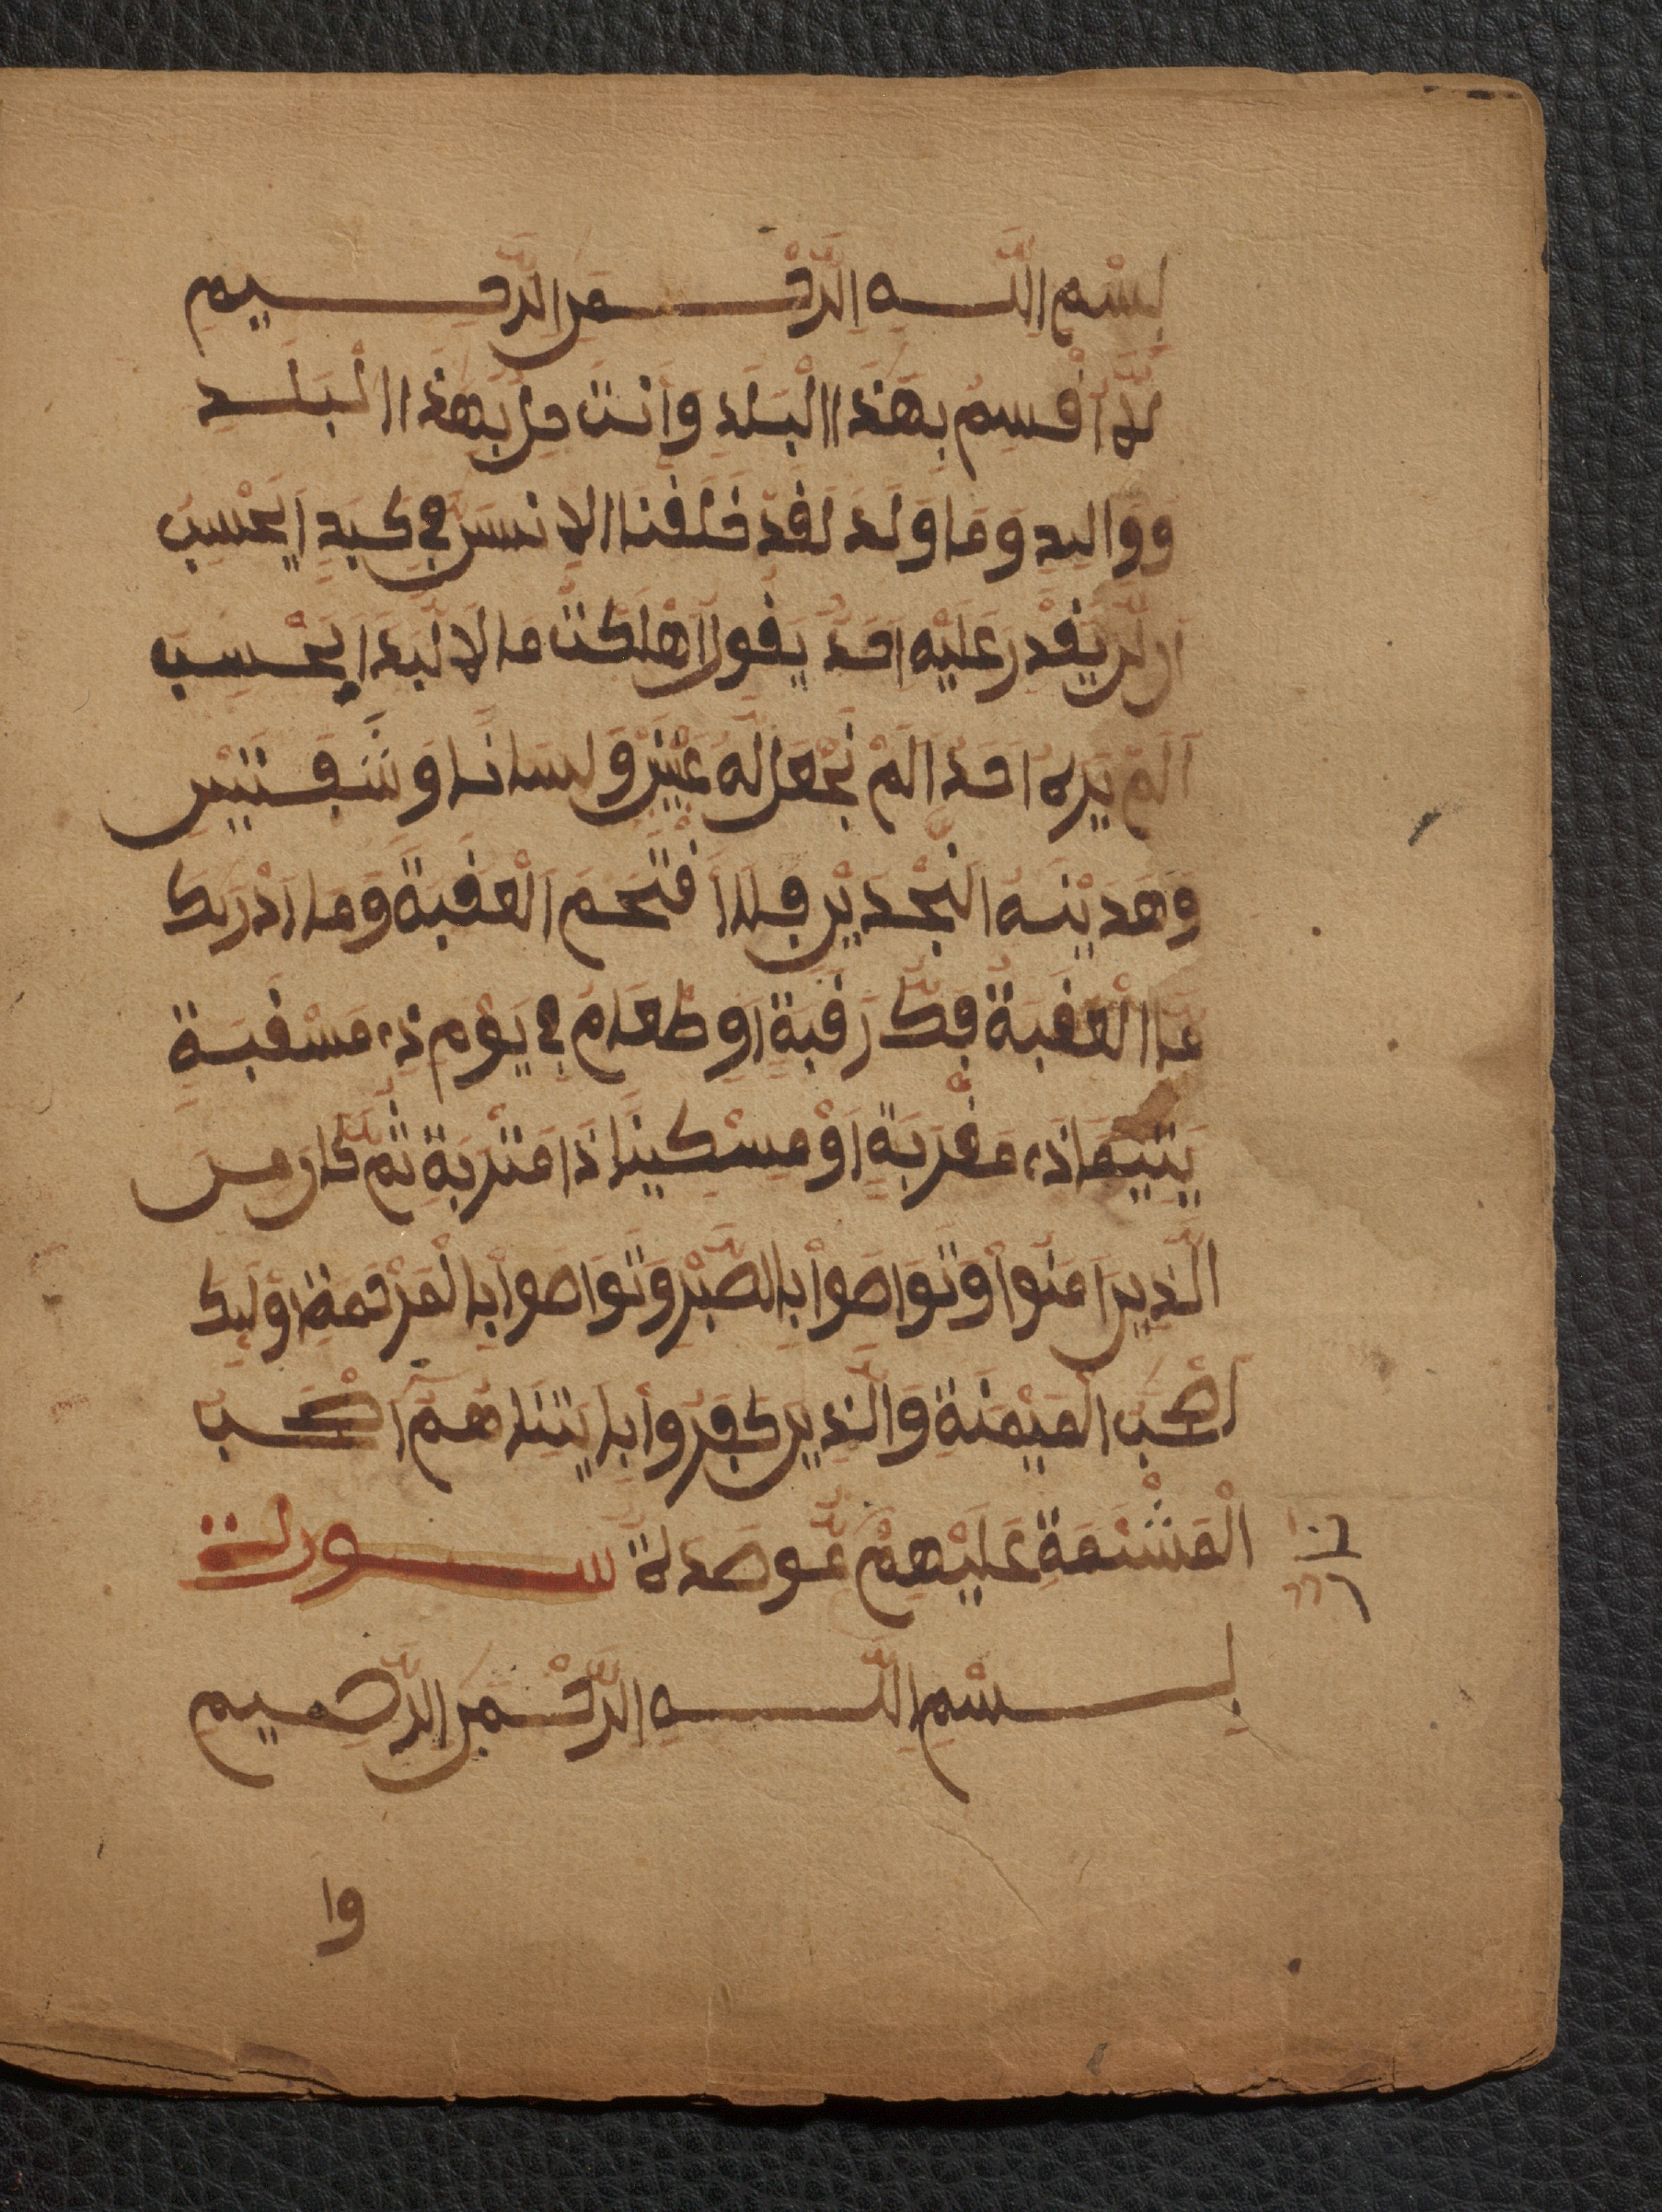 بِسْمِ اللَّهِ الرَّحْمَنِ الرَّحِيمِ
لَا أُقْسِمُ بِهَذَا الْبَلَدِ وَأَنتَ حِلٌّ بِهَذَا الْبَلَدِ
وَوَالِدٍ وَمَا وَلَدَ لَقَدْ خَلَقْنَا الْاِنسَنَ فِي كَبَدٍ اَيَحْسِبُ
أَن لَّن يَقْدِرَ عَلَيْهِ أَحَدٌ يَقُولُ أَهْلَكْتُ مَالًا لُّبَدًا اَيَحْسِبُ
أَن لَّمْ يَرَهُ أَحَدٌ اَلَمْ نَجْعَل لَّهُ عَيْنَيْنِ وَلِسَانًا وَشَفَتَيْنِ
وَهَدَيْنَهُ النَّجْدَيْنِ فَلَا اَقْتَحَمَ الْعَقَبَةَ وَمَا أَدْرَيكَ
مَا الْعَقَبَةُ فَكُّ رَقَبَةٍ اَوِ اطْعَامٌ فِي يَوْمٍ ذِي مَسْغَبَةٍ
يَتِيمًا ذَا مَقْرَبَةٍ اَوْ مِسْكِينًا ذَا مَتْرَبَةٍ ثُمَّ كَانَ مِنَ
الَّذِينَ ءَامَنُواْ وَتَوَاصَواْ بِالصَّبْرِ وَتَوَاصَواْ بِالْمَرْحَمَةِ أُوْلَئِكَ
أَصْحَبُ الْمَيْمَنَةِ وَالَّذِينَ كَفَرُواْ بِئَايَتِنَا هُمْ أَصْحَبُ
الْمَشْئَمَةِ عَلَيْهِمْ نَارٌ مُّوصَدَةٌ سورة
بِسْمِ اللَّهِ الرَّحْمَنِ الرَّحِيمِ
وا